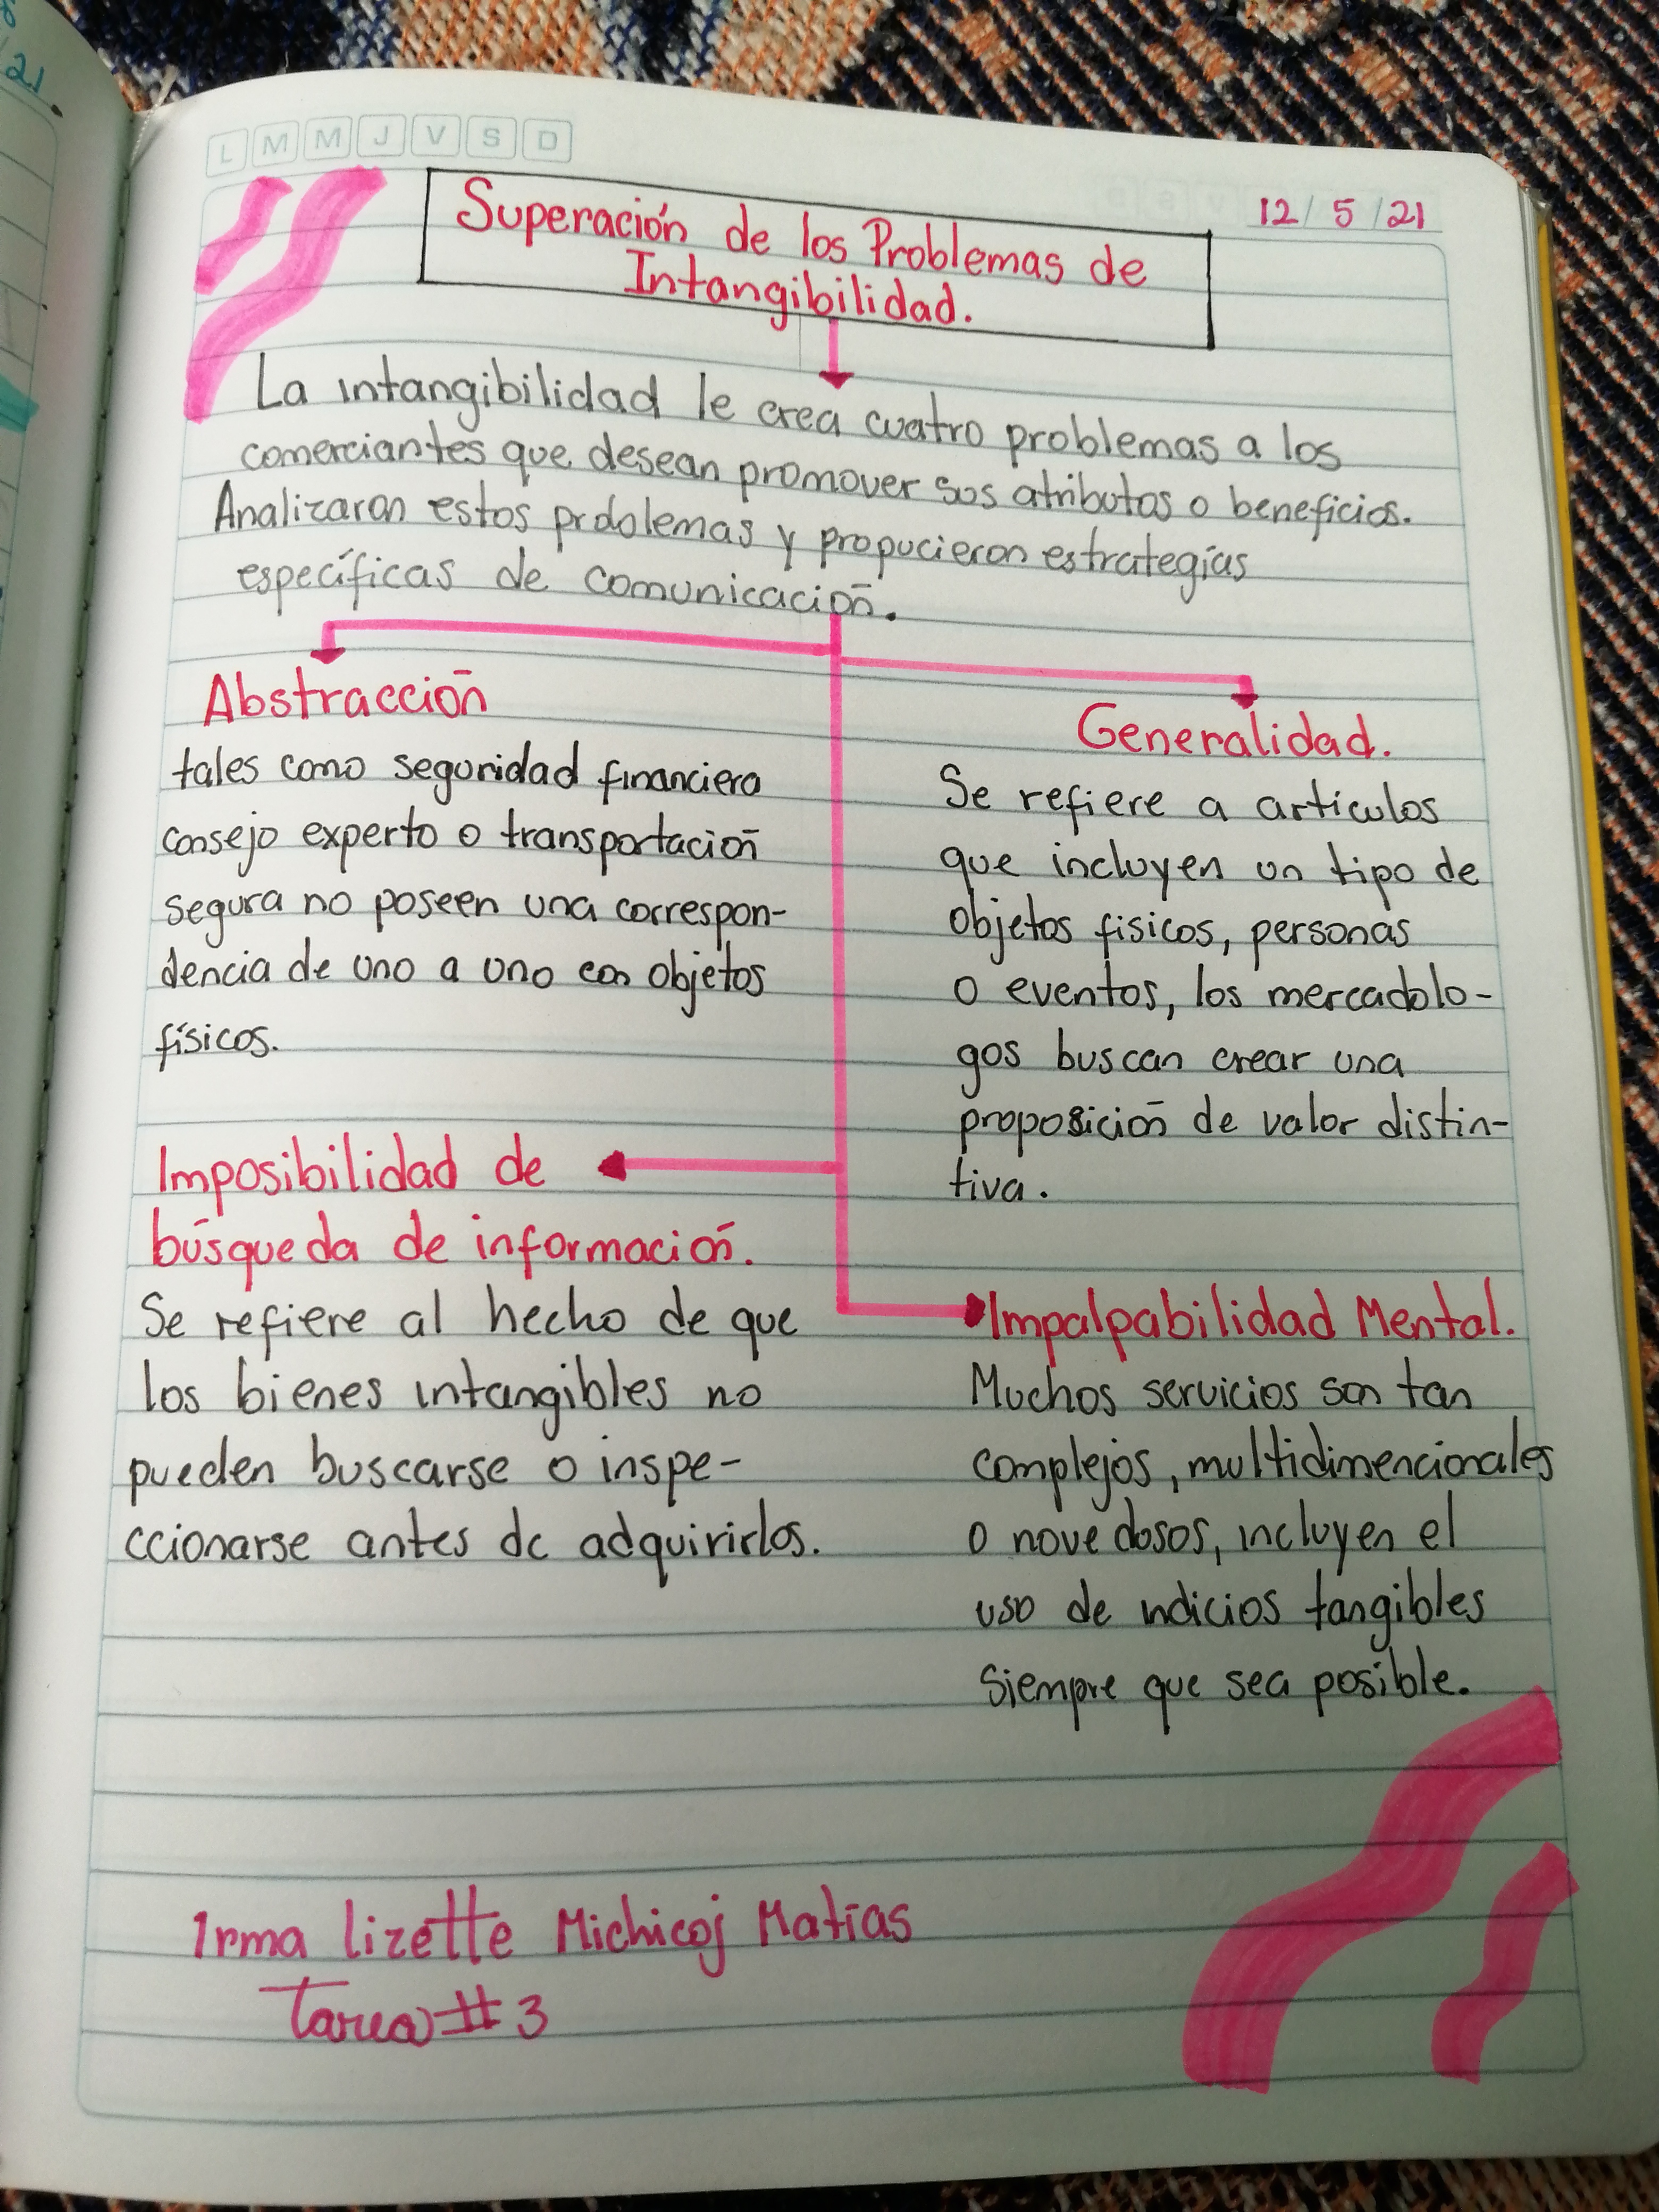 8
21
L M M J V S D
12/ 5 /21
Superación de los Problemas de
Intangibilidad.
La intangibilidad le crea cuatro problemas a los
comerciantes que desean promover sus atributos o beneficios.
Analizaron estos prdolemas y propucieron estrategias
específicas de comunicación.
Abstracción
tales como seguridad financiera
consejo experto o transportación
segura no poseen una correspon-
dencia de uno a uno con objetos
físicos.
Generalidad.
Se refiere a articulos
que incluyen un tipo de
objetos fisicos, personas
o eventos, los mercadolo-
gos buscan crear una
proposición de valor distin-
tiva.
Imposibilidad de
búsqueda de información.
Se refiere al hecho de que
los bienes intangibles no
pueden buscarse o inspe-
ccionarse antes de adquirirlos.
Impalpabilidad Mental.
Muchos servicios son tan
complejos, multidimencionales
o novedosos, incluyen el
uso de indicios tangibles
siempre que sea posible.
Irma lizette Michicoj Matías
Tarea # 3